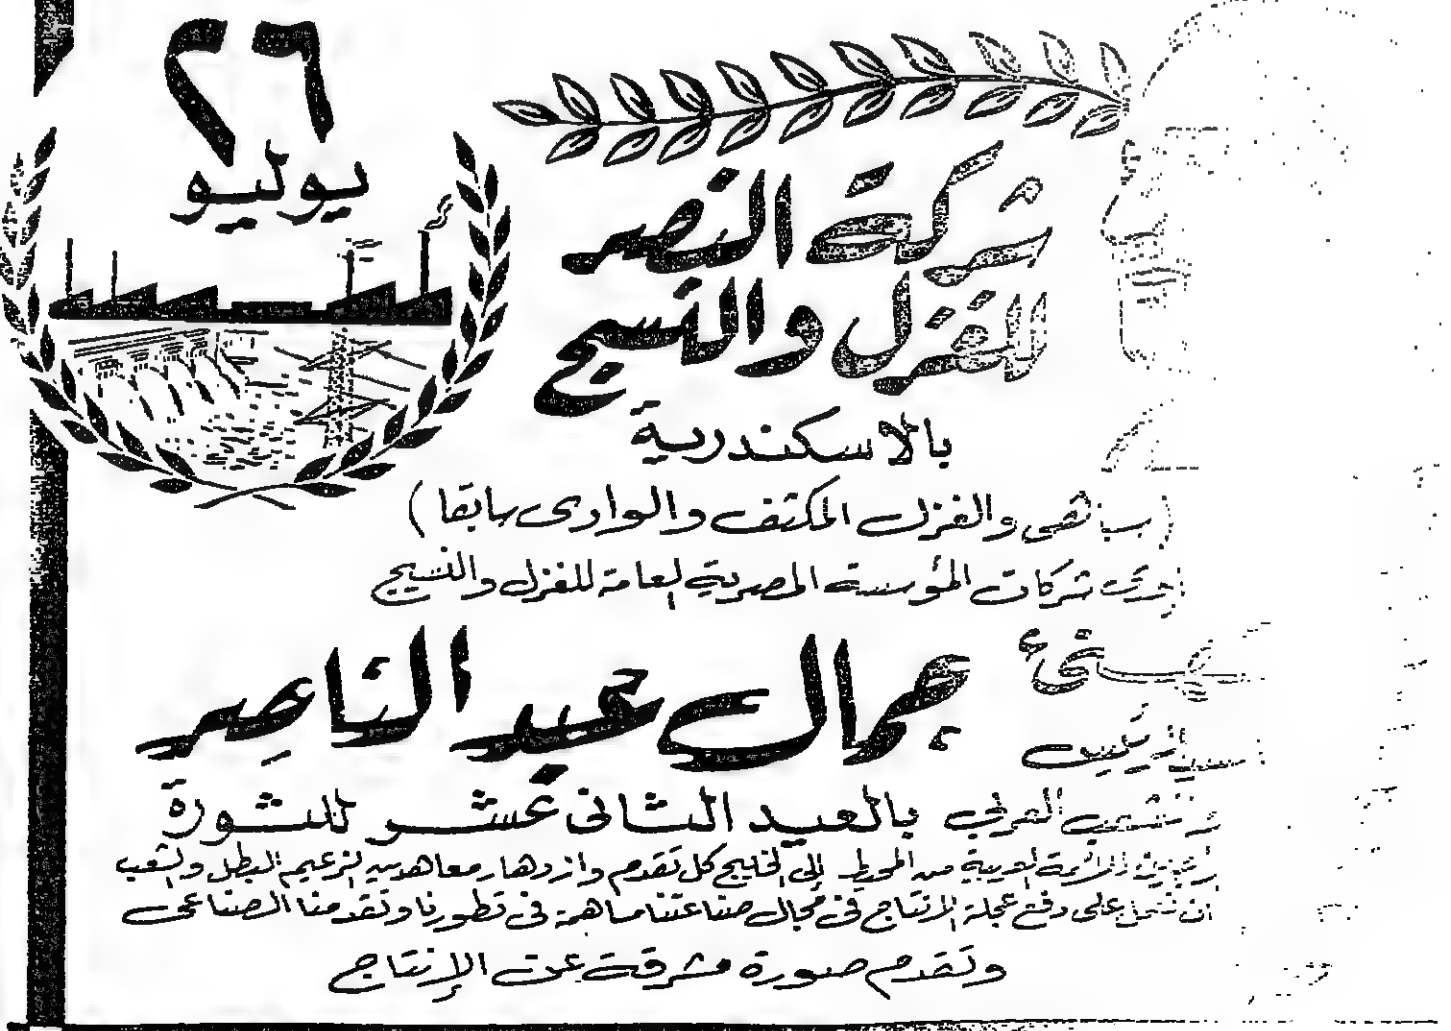 ٢٦
يوليو
شركة النصر
للغزل والنسيج
بالاسكندرية
(سباهى والغزل المكثف والوادى سابقا)
شركات المؤسسة المصرية العامة للغزل والنسيج
جمال عبد الناصر
العربى بالعيد الثانى عشر للثورة
العربية من المحيط إلى الخليج كل تقدم وازدهار معاهدين الزعيم البطل والشعب
ان نعمل على دفع عجلة الإنتاج فى مجال صناعتنا مساهمة فى تطورنا وتقدمنا الصناعى
وتقدم صورة مشرقة عن الإنتاج